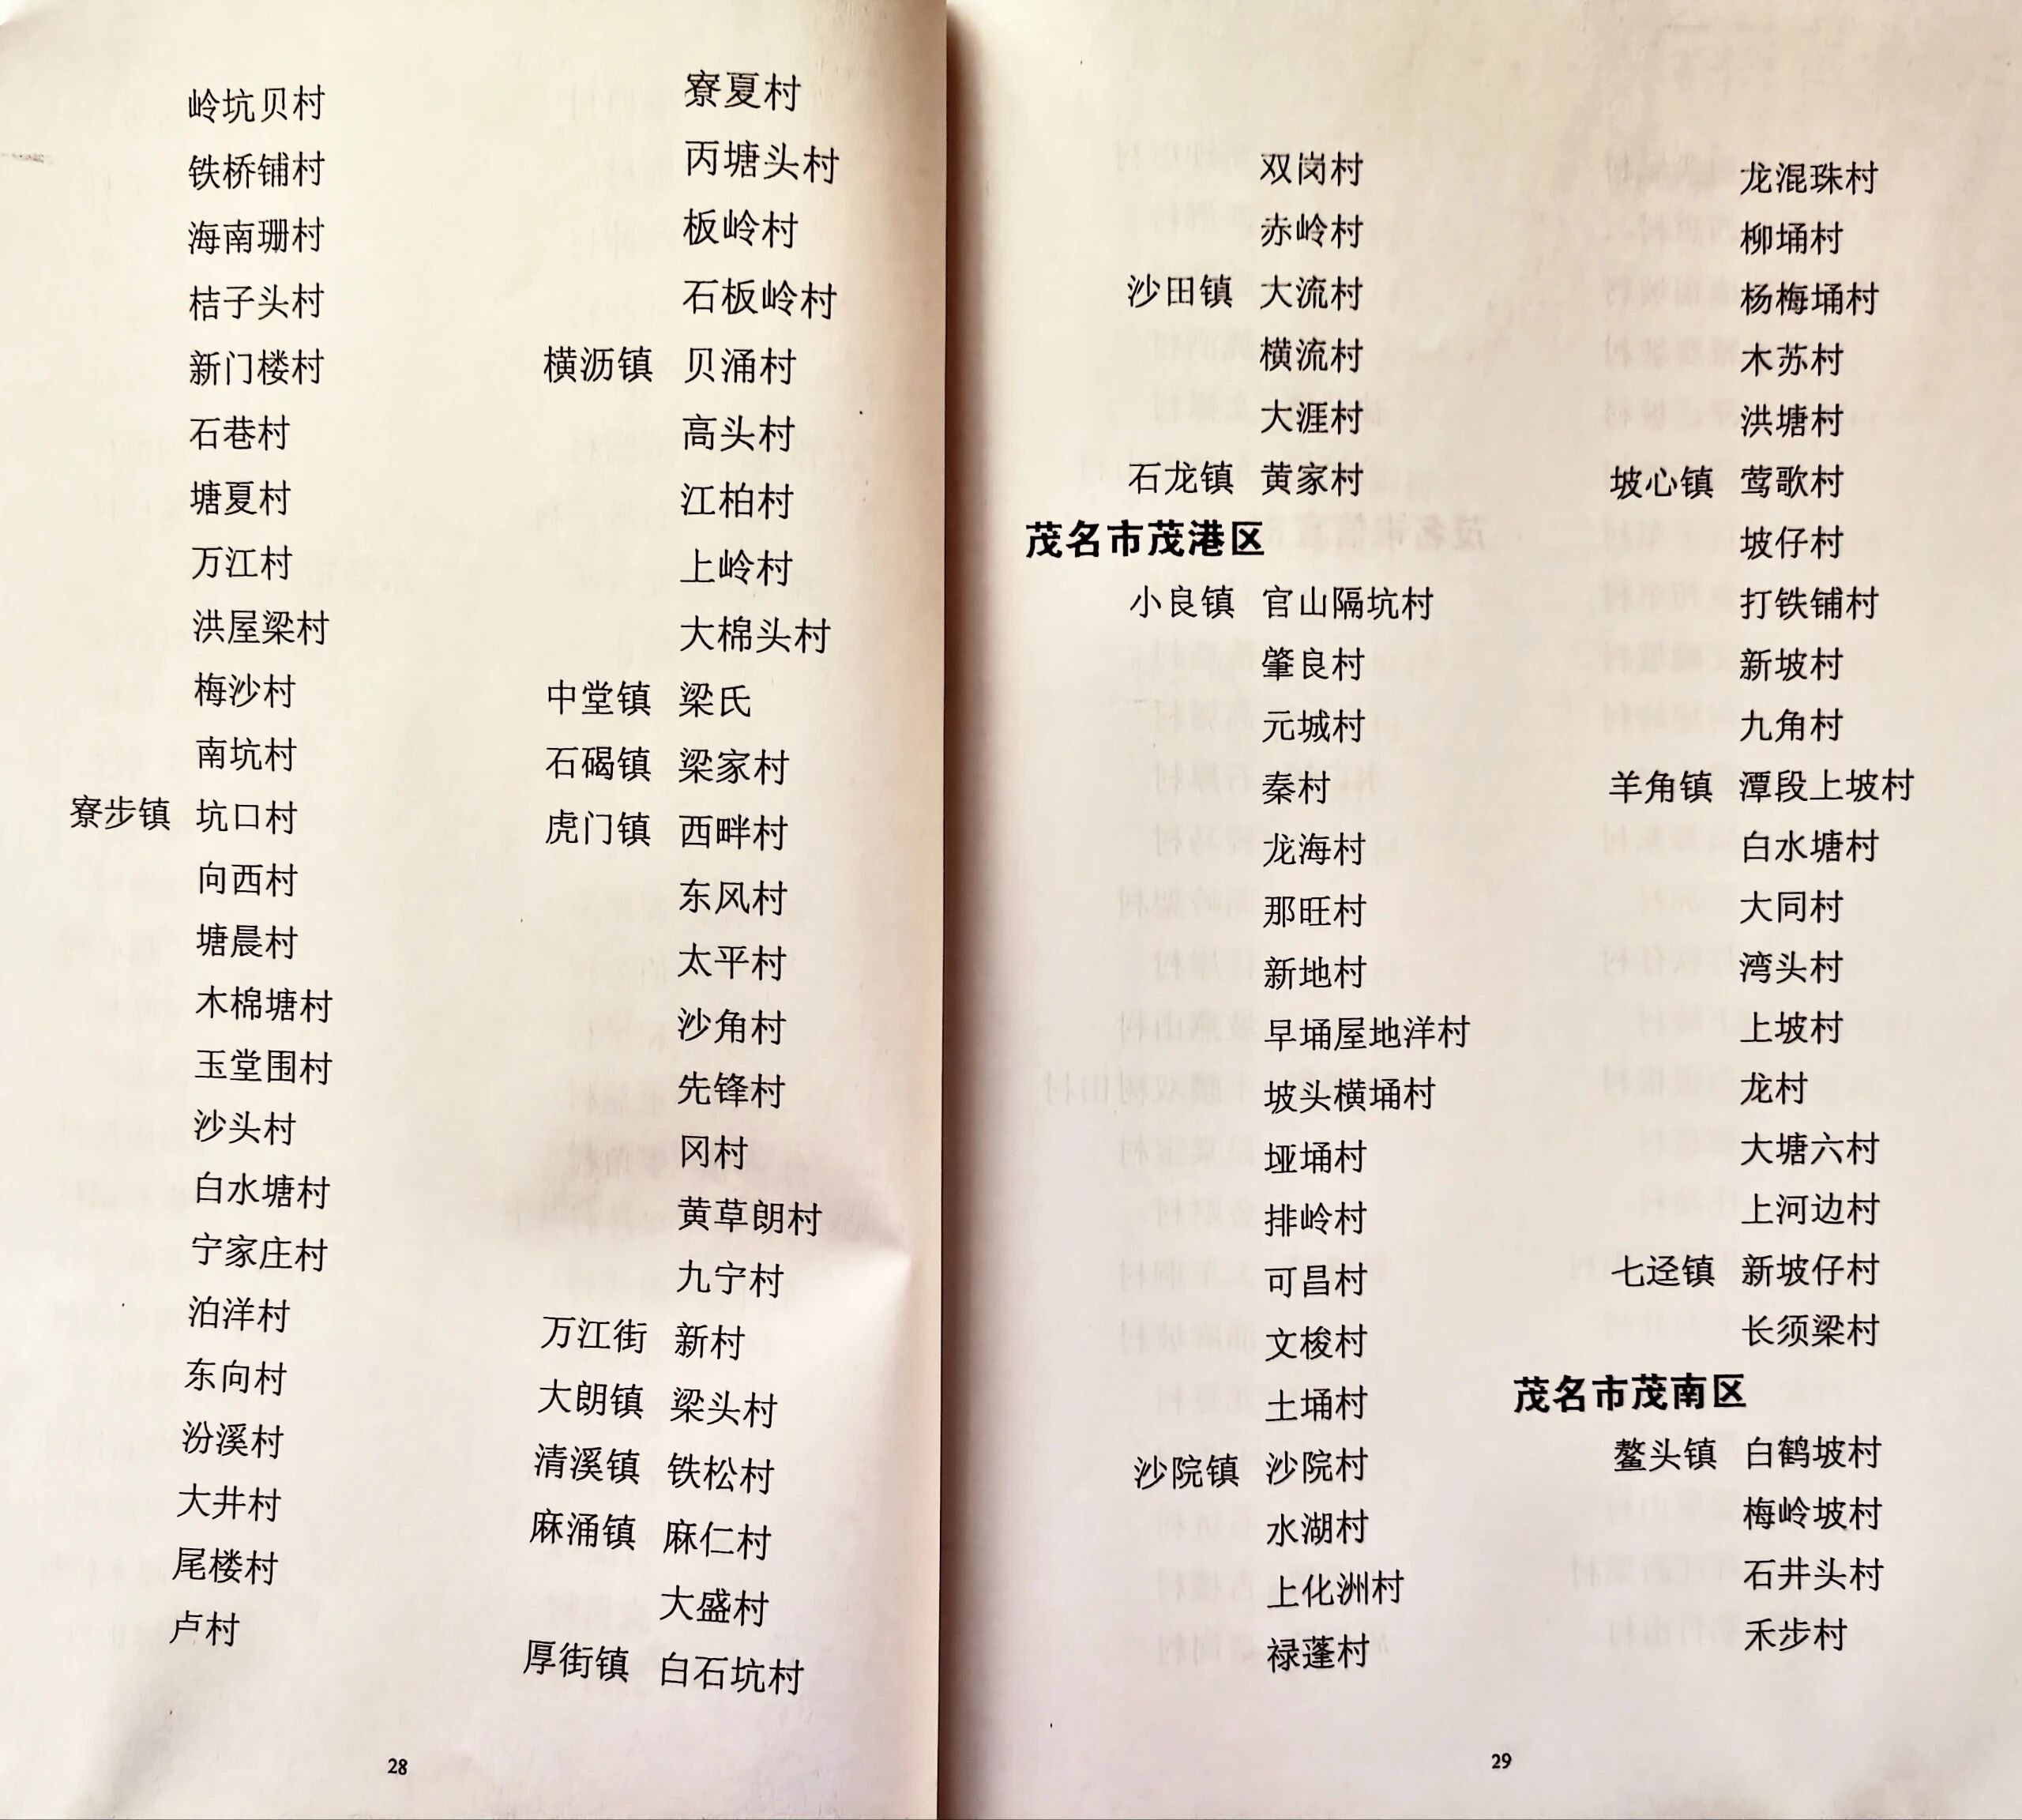 岭坑贝村
铁桥铺村
海南珊村
桔子头村
新门楼村
石巷村
塘夏村
万江村
洪屋梁村
梅沙村
南坑村
寮步镇 坑口村
向西村
塘晨村
木棉塘村
玉堂围村
沙头村
白水塘村
宁家庄村
泊洋村
东向村
汾溪村
大井村
尾楼村
卢村
寮夏村
丙塘头村
板岭村
石板岭村
横沥镇 贝涌村
高头村
江柏村
上岭村
大棉头村
中堂镇 梁氏
石碣镇 梁家村
虎门镇 西畔村
东风村
太平村
沙角村
先锋村
冈村
黄草朗村
九宁村
万江街 新村
大朗镇 梁头村
清溪镇 铁松村
麻涌镇 麻仁村
大盛村
厚街镇 白石坑村
28
双岗村
赤岭村
沙田镇 大流村
横流村
大涯村
石龙镇 黄家村
茂名市茂港区
小良镇 官山隔坑村
肇良村
元城村
秦村
龙海村
那旺村
新地村
早埇屋地洋村
坡头横埇村
垭埇村
排岭村
可昌村
文梭村
土埇村
沙院镇 沙院村
水湖村
上化洲村
禄蓬村
龙混珠村
柳埇村
杨梅埇村
木苏村
洪塘村
坡心镇 莺歌村
坡仔村
打铁铺村
新坡村
九角村
羊角镇 潭段上坡村
白水塘村
大同村
湾头村
上坡村
龙村
大塘六村
上河边村
七迳镇 新坡仔村
长须梁村
茂名市茂南区
鳌头镇 白鹤坡村
梅岭坡村
石井头村
禾步村
29